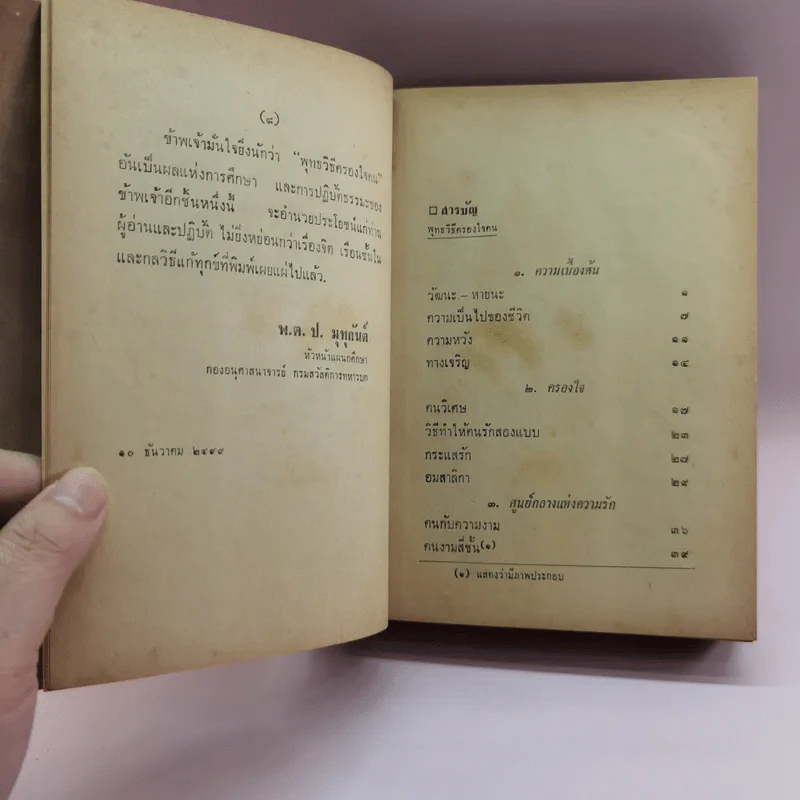 (๘)
ข้าพเจ้ามั่นใจยิ่งนักว่า "พุทธวิธีครองใจคน"
อันเป็นผลแห่งการศึกษา และการปฏิบัติธรรมะของ
ข้าพเจ้าอีกชั้นหนึ่งนี้ จะอำนวยประโยชน์แก่ท่าน
ผู้อ่านและปฏิบัติ ไม่ยิ่งหย่อนกว่าเรื่องจิต เรือนชั้นใน
และกลวิธีแก้ทุกข์ที่พิมพ์เผยแผ่ไปแล้ว.
พ.ต. ป. มุทุกันต์
หัวหน้าแผนกศึกษา
กองอนุศาสนาจารย์ กรมสวัสดิการทหารบก
๑๐ ธันวาคม ๒๔๙๙
□ สารบัญ
พุทธวิธีครองใจคน
๑. ความเบื้องต้น
วัฒนะ – หายนะ ๑
ความเป็นไปของชีวิต ๗
ความหวัง ๑๑
ทางเจริญ ๑๔
๒. ครองใจ
คนวิเศษ ๑๗
วิธีทำให้คนรักสองแบบ ๒๓
กระแสรัก ๒๗
อมสาลิกา ๒๙
๓. ศูนย์กลางแห่งความรัก
คนกับความงาม ๓๖
คนงามสี่ชั้น(๑) ๓๙
(๑) แสดงว่ามีภาพประกอบ